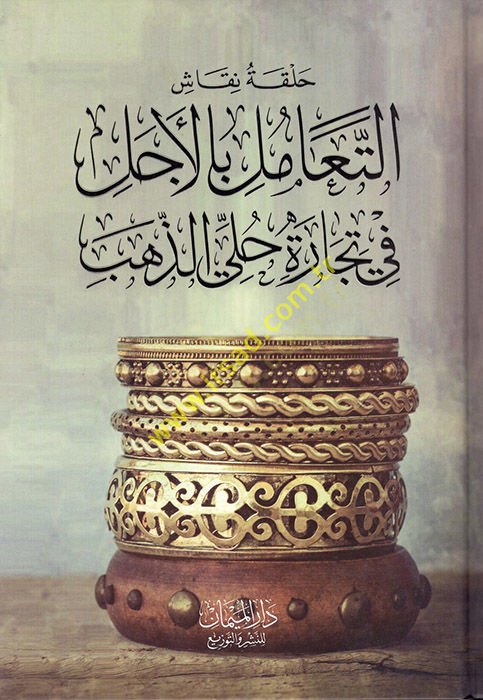 حَلْقَةُ نِقَاشِ
التَّعَامُلِ بِالأَجَلِ
فِي تِجَارَةِ حُلِيِّ الذَّهَبِ
دار الميمان
للنشر والتوزيع